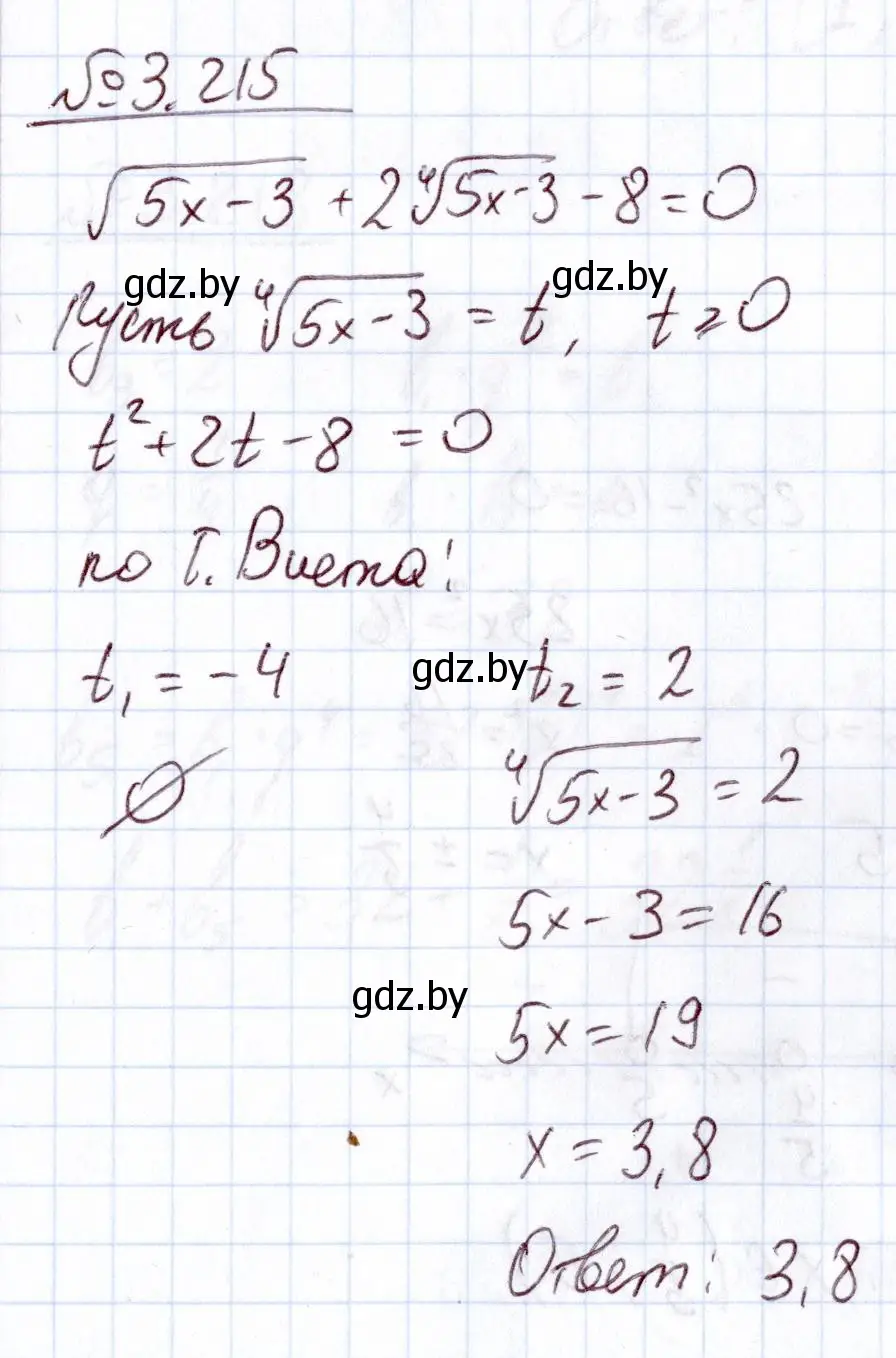 №3.215
√(5x-3) + 2⁴√(5x-3) - 8 = 0
gdz.by gdz.by
Пусть ⁴√(5x-3) = t, t ≥ 0
t² + 2t - 8 = 0
по Т. Виета:
t₁ = -4 gdz.by t₂ = 2
∅ ⁴√(5x-3) = 2
5x - 3 = 16
gdz.by
5x = 19
x = 3,8
Ответ: 3,8